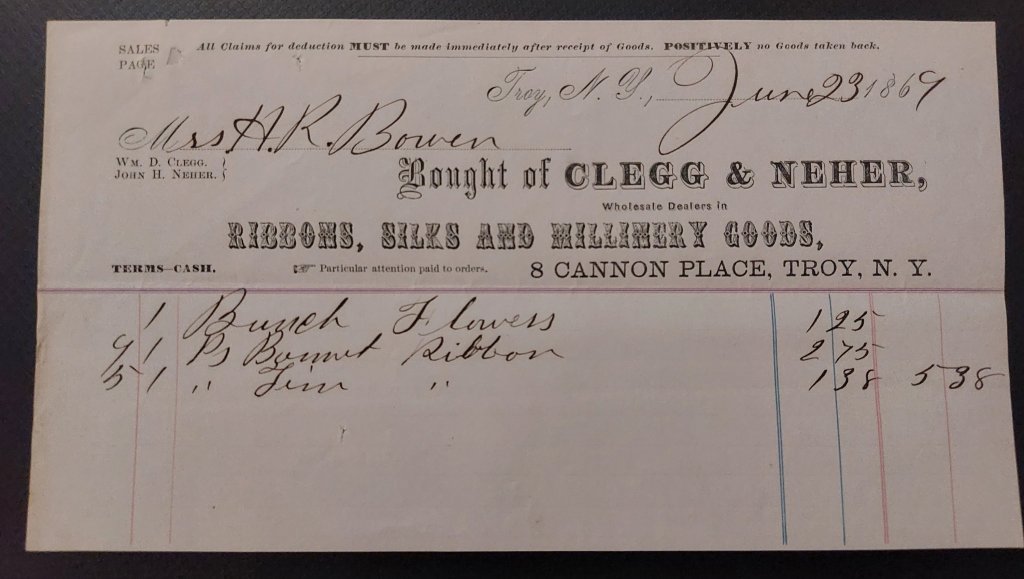 SALES
PAGE
All Claims for deduction MUST be made immediately after receipt of Goods. POSITIVELY no Goods taken back.
Troy, N. Y., June 23 1869
Mrs H. R. Bowen
WM. D. CLEGG.
JOHN H. NEHER.
Bought of CLEGG & NEHER,
Wholesale Dealers in
RIBBONS, SILKS AND MILLINERY GOODS,
TERMS—CASH. ☞ Particular attention paid to orders. 8 CANNON PLACE, TROY, N. Y.
1 Bunch Flowers 1 25
9 1 Ps Bonnet Ribbon 2 75
5 1 " " 1 38 5 38